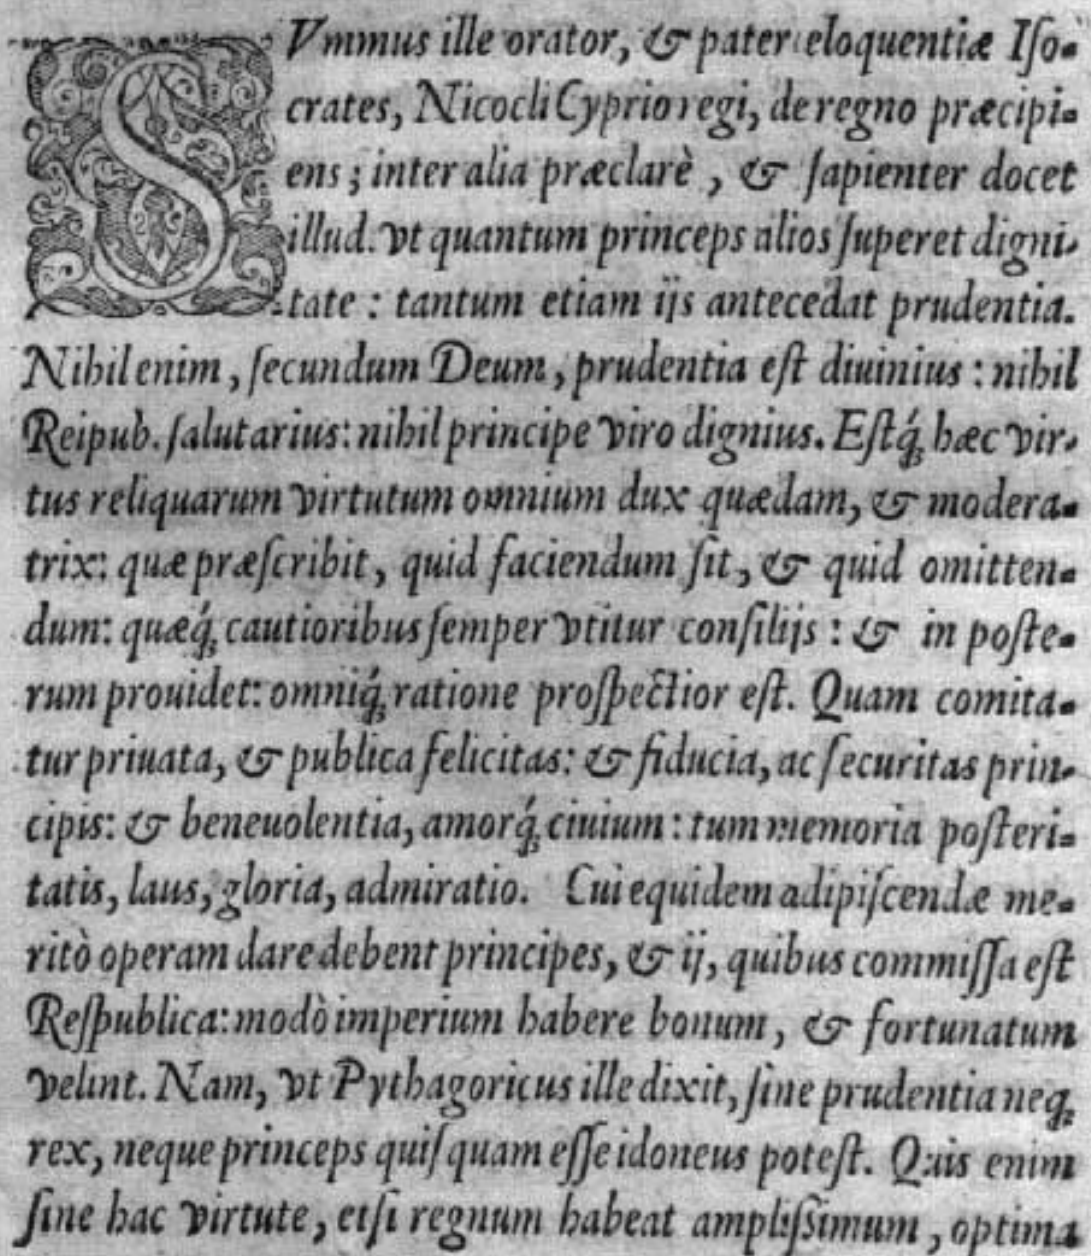 SVmmus ille orator, & pater eloquentiæ Iſo-
crates, Nicocli Cyprio regi, de regno præcipi-
ens; inter alia præclarè, & ſapienter docet
illud. vt quantum princeps alios ſuperet digni-
tate: tantum etiam ijs antecedat prudentia.
Nihil enim, ſecundum Deum, prudentia eſt diuinius: nihil
Reipub. ſalutarius: nihil principe viro dignius. Eſtq́; hæc vir-
tus reliquarum virtutum omnium dux quædam, & modera-
trix: quæ præſcribit, quid faciendum ſit, & quid omitten-
dum: quæq́; cautioribus ſemper vtitur conſilijs: & in poſte-
rum prouidet: omniq́; ratione proſpectior eſt. Quam comita-
tur priuata, & publica felicitas: & fiducia, ac ſecuritas prin-
cipis: & beneuolentia, amorq́; ciuium: tum memoria poſteri-
tatis, laus, gloria, admiratio. Cui equidem adipiſcendæ me-
ritò operam dare debent principes, & ij, quibus commiſſa eſt
Reſpublica: modò imperium habere bonum, & fortunatum
velint. Nam, vt Pythagoricus ille dixit, ſine prudentia neq;
rex, neque princeps quiſquam eſſe idoneus poteſt. Quis enim
ſine hac virtute, etſi regnum habeat ampliſſimum, optima